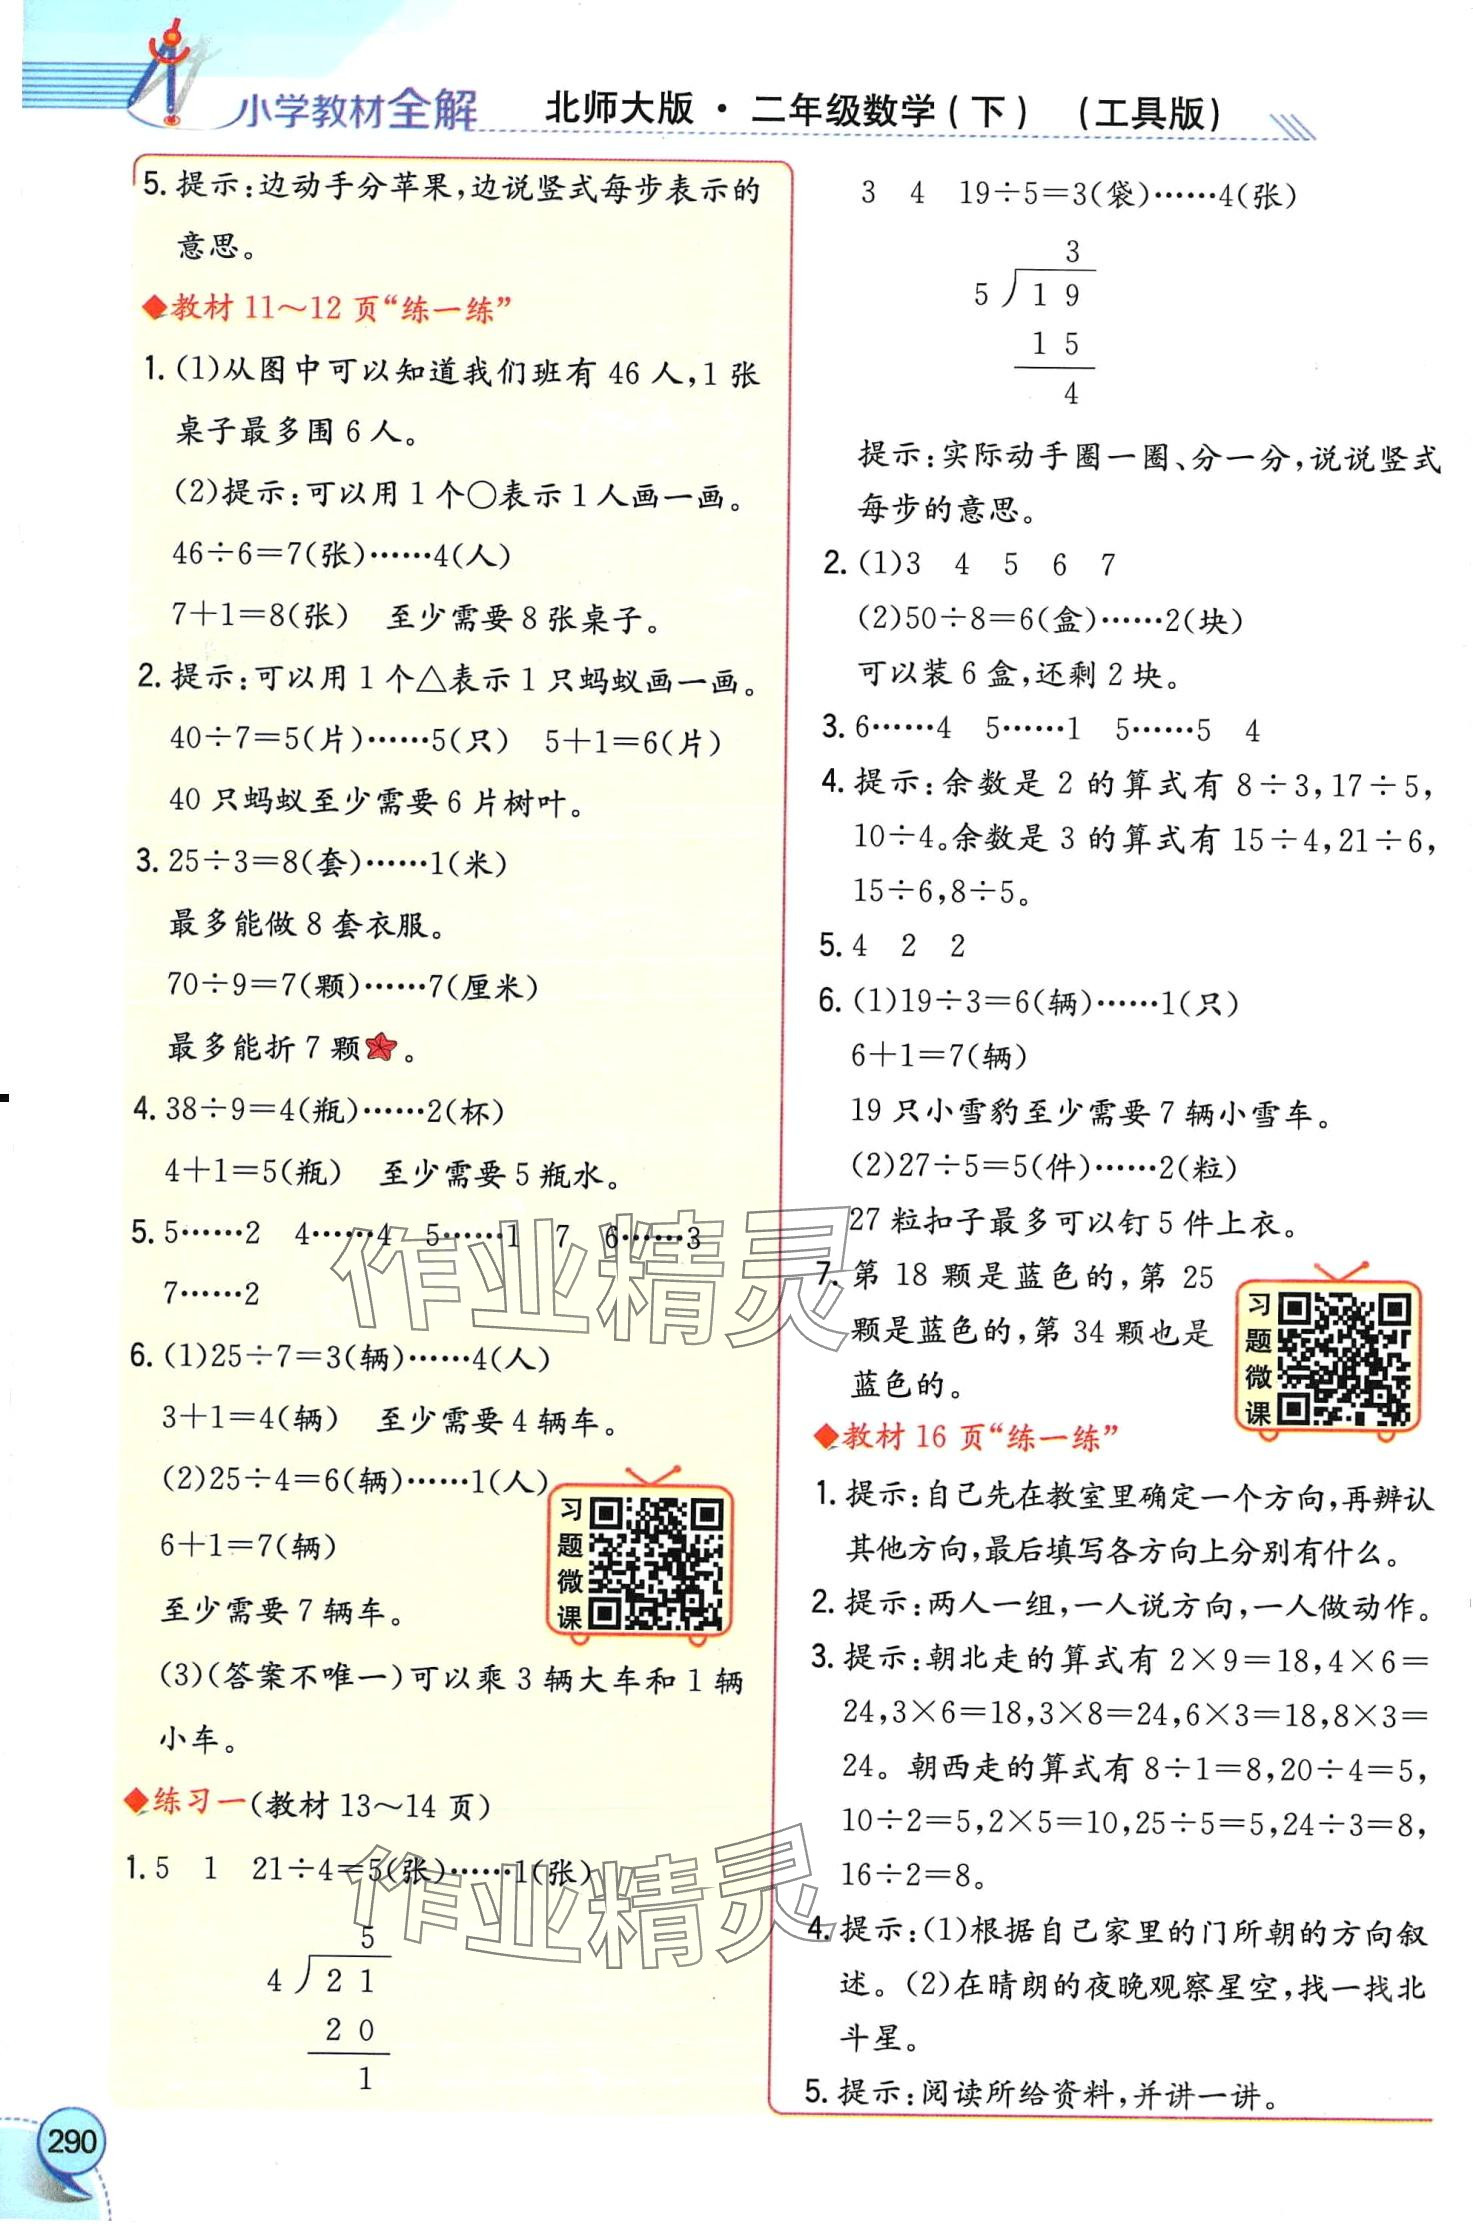 小学教材全解 北师大版·二年级数学(下) (工具版)
5. 提示:边动手分苹果,边说竖式每步表示的
意思。
◆教材11～12页“练一练”
1. (1)从图中可以知道我们班有46人,1张
桌子最多围6人。
(2)提示:可以用1个○表示1人画一画。
46÷6=7(张)……4(人)
7+1=8(张) 至少需要8张桌子。
2. 提示:可以用1个△表示1只蚂蚁画一画。
40÷7=5(片)……5(只) 5+1=6(片)
40只蚂蚁至少需要6片树叶。
3. 25÷3=8(套)……1(米)
最多能做8套衣服。
70÷9=7(颗)……7(厘米)
最多能折7颗★。
4. 38÷9=4(瓶)……2(杯)
4+1=5(瓶) 至少需要5瓶水。
5. 5……2 4……4 5……1 7 6……3
7……2
6. (1)25÷7=3(辆)……4(人)
3+1=4(辆) 至少需要4辆车。
(2)25÷4=6(辆)……1(人)
6+1=7(辆)
至少需要7辆车。
习题微课
(3)(答案不唯一)可以乘3辆大车和1辆
小车。
◆练习一(教材13～14页)
1. 5 1 21÷4=5(张)……1(张)
5
4 21
20
1
3 4 19÷5=3(袋)……4(张)
3
5 19
15
4
提示:实际动手圈一圈、分一分,说说竖式
每步的意思。
2. (1)3 4 5 6 7
(2)50÷8=6(盒)……2(块)
可以装6盒,还剩2块。
3. 6……4 5……1 5……5 4
4. 提示:余数是2的算式有8÷3,17÷5,
10÷4。余数是3的算式有15÷4,21÷6,
15÷6,8÷5。
5. 4 2 2
6. (1)19÷3=6(辆)……1(只)
6+1=7(辆)
19只小雪豹至少需要7辆小雪车。
(2)27÷5=5(件)……2(粒)
27粒扣子最多可以钉5件上衣。
7. 第18颗是蓝色的,第25
颗是蓝色的,第34颗也是
蓝色的。
习题微课
◆教材16页“练一练”
1. 提示:自己先在教室里确定一个方向,再辨认
其他方向,最后填写各方向上分别有什么。
2. 提示:两人一组,一人说方向,一人做动作。
3. 提示:朝北走的算式有2×9=18,4×6=
24,3×6=18,3×8=24,6×3=18,8×3=
24。朝西走的算式有8÷1=8,20÷4=5,
10÷2=5,2×5=10,25÷5=5,24÷3=8,
16÷2=8。
4. 提示:(1)根据自己家里的门所朝的方向叙
述。(2)在晴朗的夜晚观察星空,找一找北
斗星。
5. 提示:阅读所给资料,并讲一讲。
作业精灵
作业精灵
290